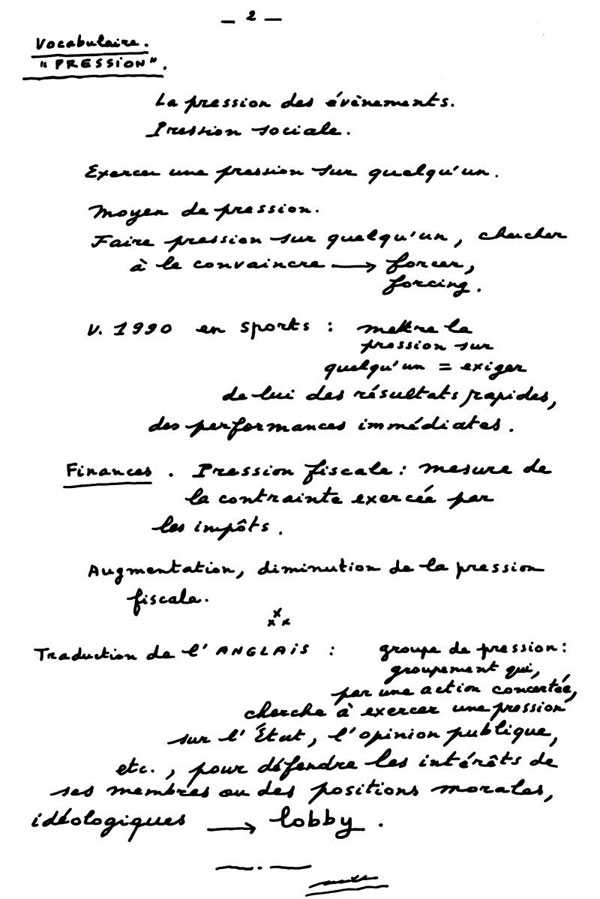 — 2 —
Vocabulaire.
"PRESSION".
La pression des évènements.
Pression sociale.
Exercer une pression sur quelqu'un.
Moyen de pression.
Faire pression sur quelqu'un, chercher
à le convaincre → forcer,
forcing.
V. 1990 en sports : mettre la
pression sur
quelqu'un = exiger
de lui des résultats rapides,
des performances immédiates.
Finances. Pression fiscale : mesure de
la contrainte exercée par
les impôts.
Augmentation, diminution de la pression
fiscale.
Traduction de l'ANGLAIS : groupe de pression :
groupement qui,
par une action concertée,
cherche à exercer une pression
sur l'État, l'opinion publique,
etc., pour défendre les intérêts de
ses membres ou des positions morales,
idéologiques → lobby.